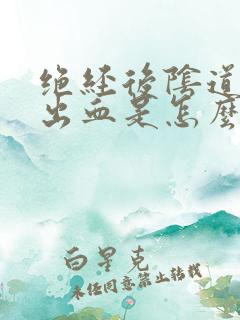 绝经後陰道
出血是怎麽
白星克
未经同意禁止转载